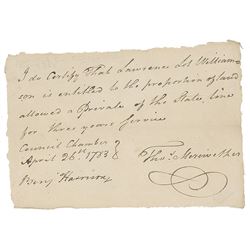 I do Certify That Lawrence Lot William
son is entitled to the proportion of land
allowed a Private of the State line
for three years Service
Council Chamber
April 26th 1783
Thos. Meriwether
Benj Harrison